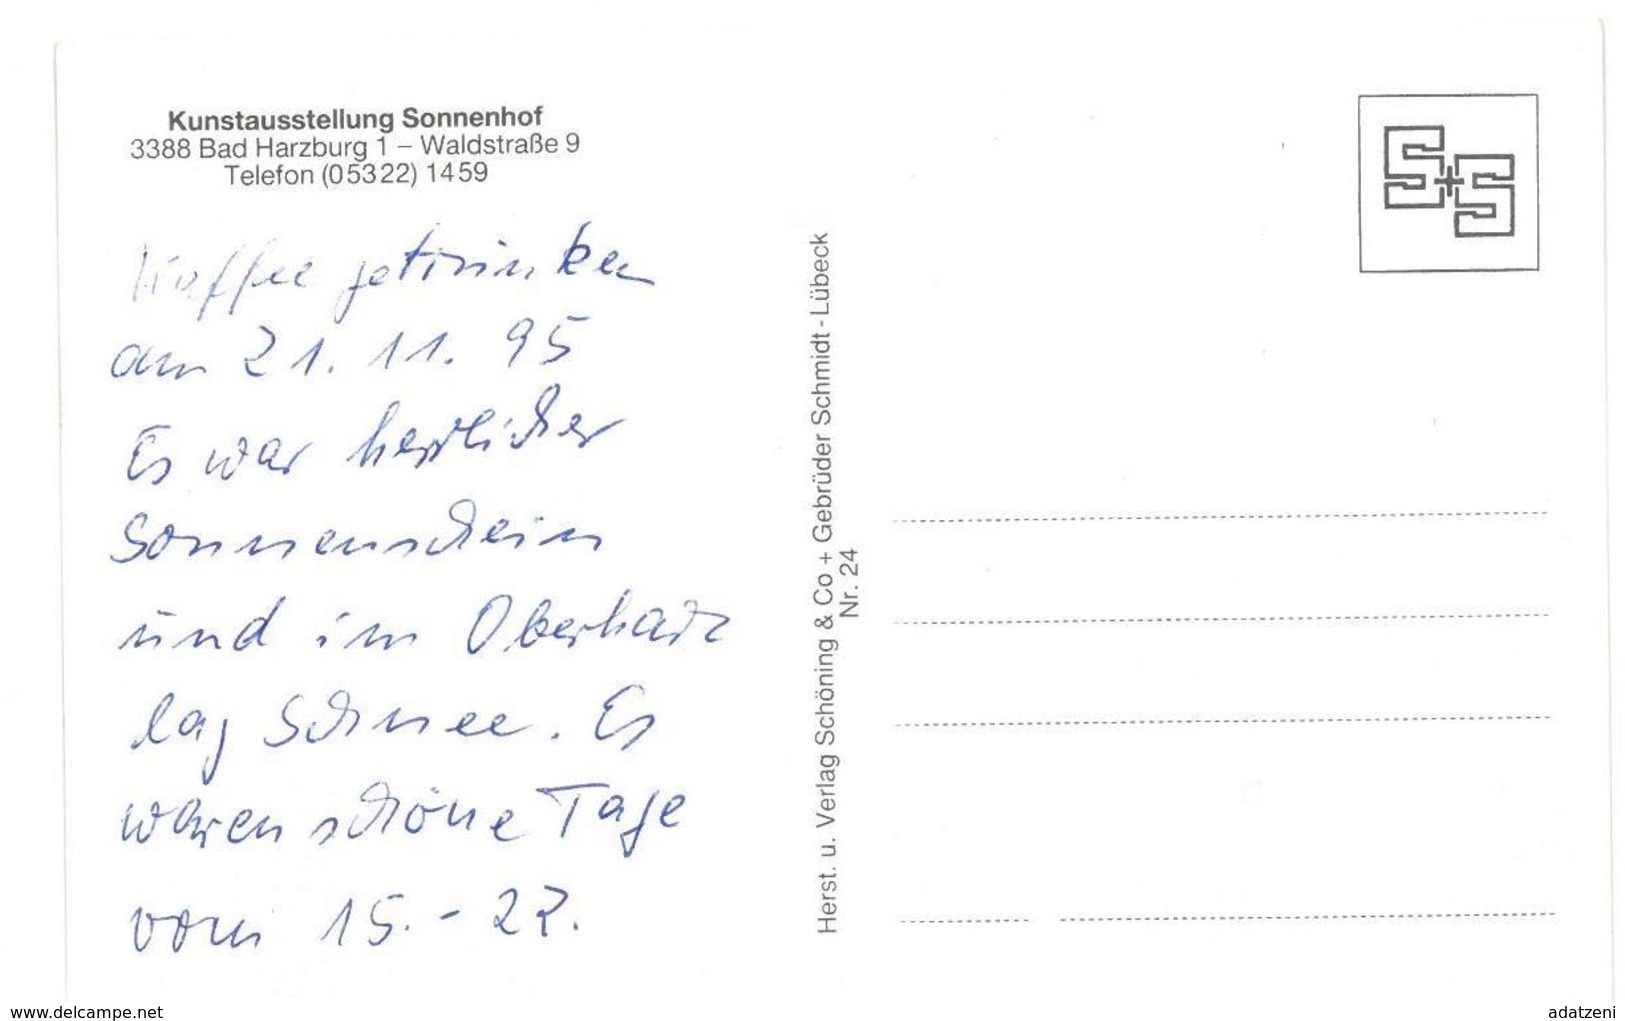 Kunstausstellung Sonnenhof
3388 Bad Harzburg 1 – Waldstraße 9
Telefon (05322) 1459
Kaffee getrunken
am 21. 11. 95
Es war herrlicher
Sonnenschein
und im Oberharz
lag Schnee. Es
waren schöne Tage
vom 15. - 22.
Herst. u. Verlag Schöning & Co + Gebrüder Schmidt - Lübeck
Nr. 24
S+S
www.delcampe.net
adatzeni